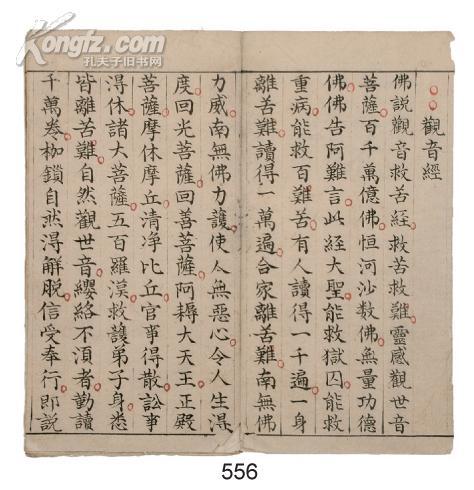 Kongfz.com
孔夫子旧书网
觀音經
佛説觀音救苦経救苦救難靈感觀世音
菩薩百千萬億佛恒河沙数佛無量功德
佛佛告阿難言此經大聖能救獄囚能救
重病能救百難苦有人讀得一千遍一身
離苦難讀得一萬遍合家離苦難南無佛
力威南無佛力護使人無惡心令人生得
度回光菩薩回善菩薩阿耨大天王正殿
菩薩摩休摩丘清淨比丘官事得散訟事
得休諸大菩薩五百羅漢救護弟子身悉
皆離苦難自然觀世音纓絡不湏者勤讀
千萬卷枷鎖自然得解脫信受奉行即説
556